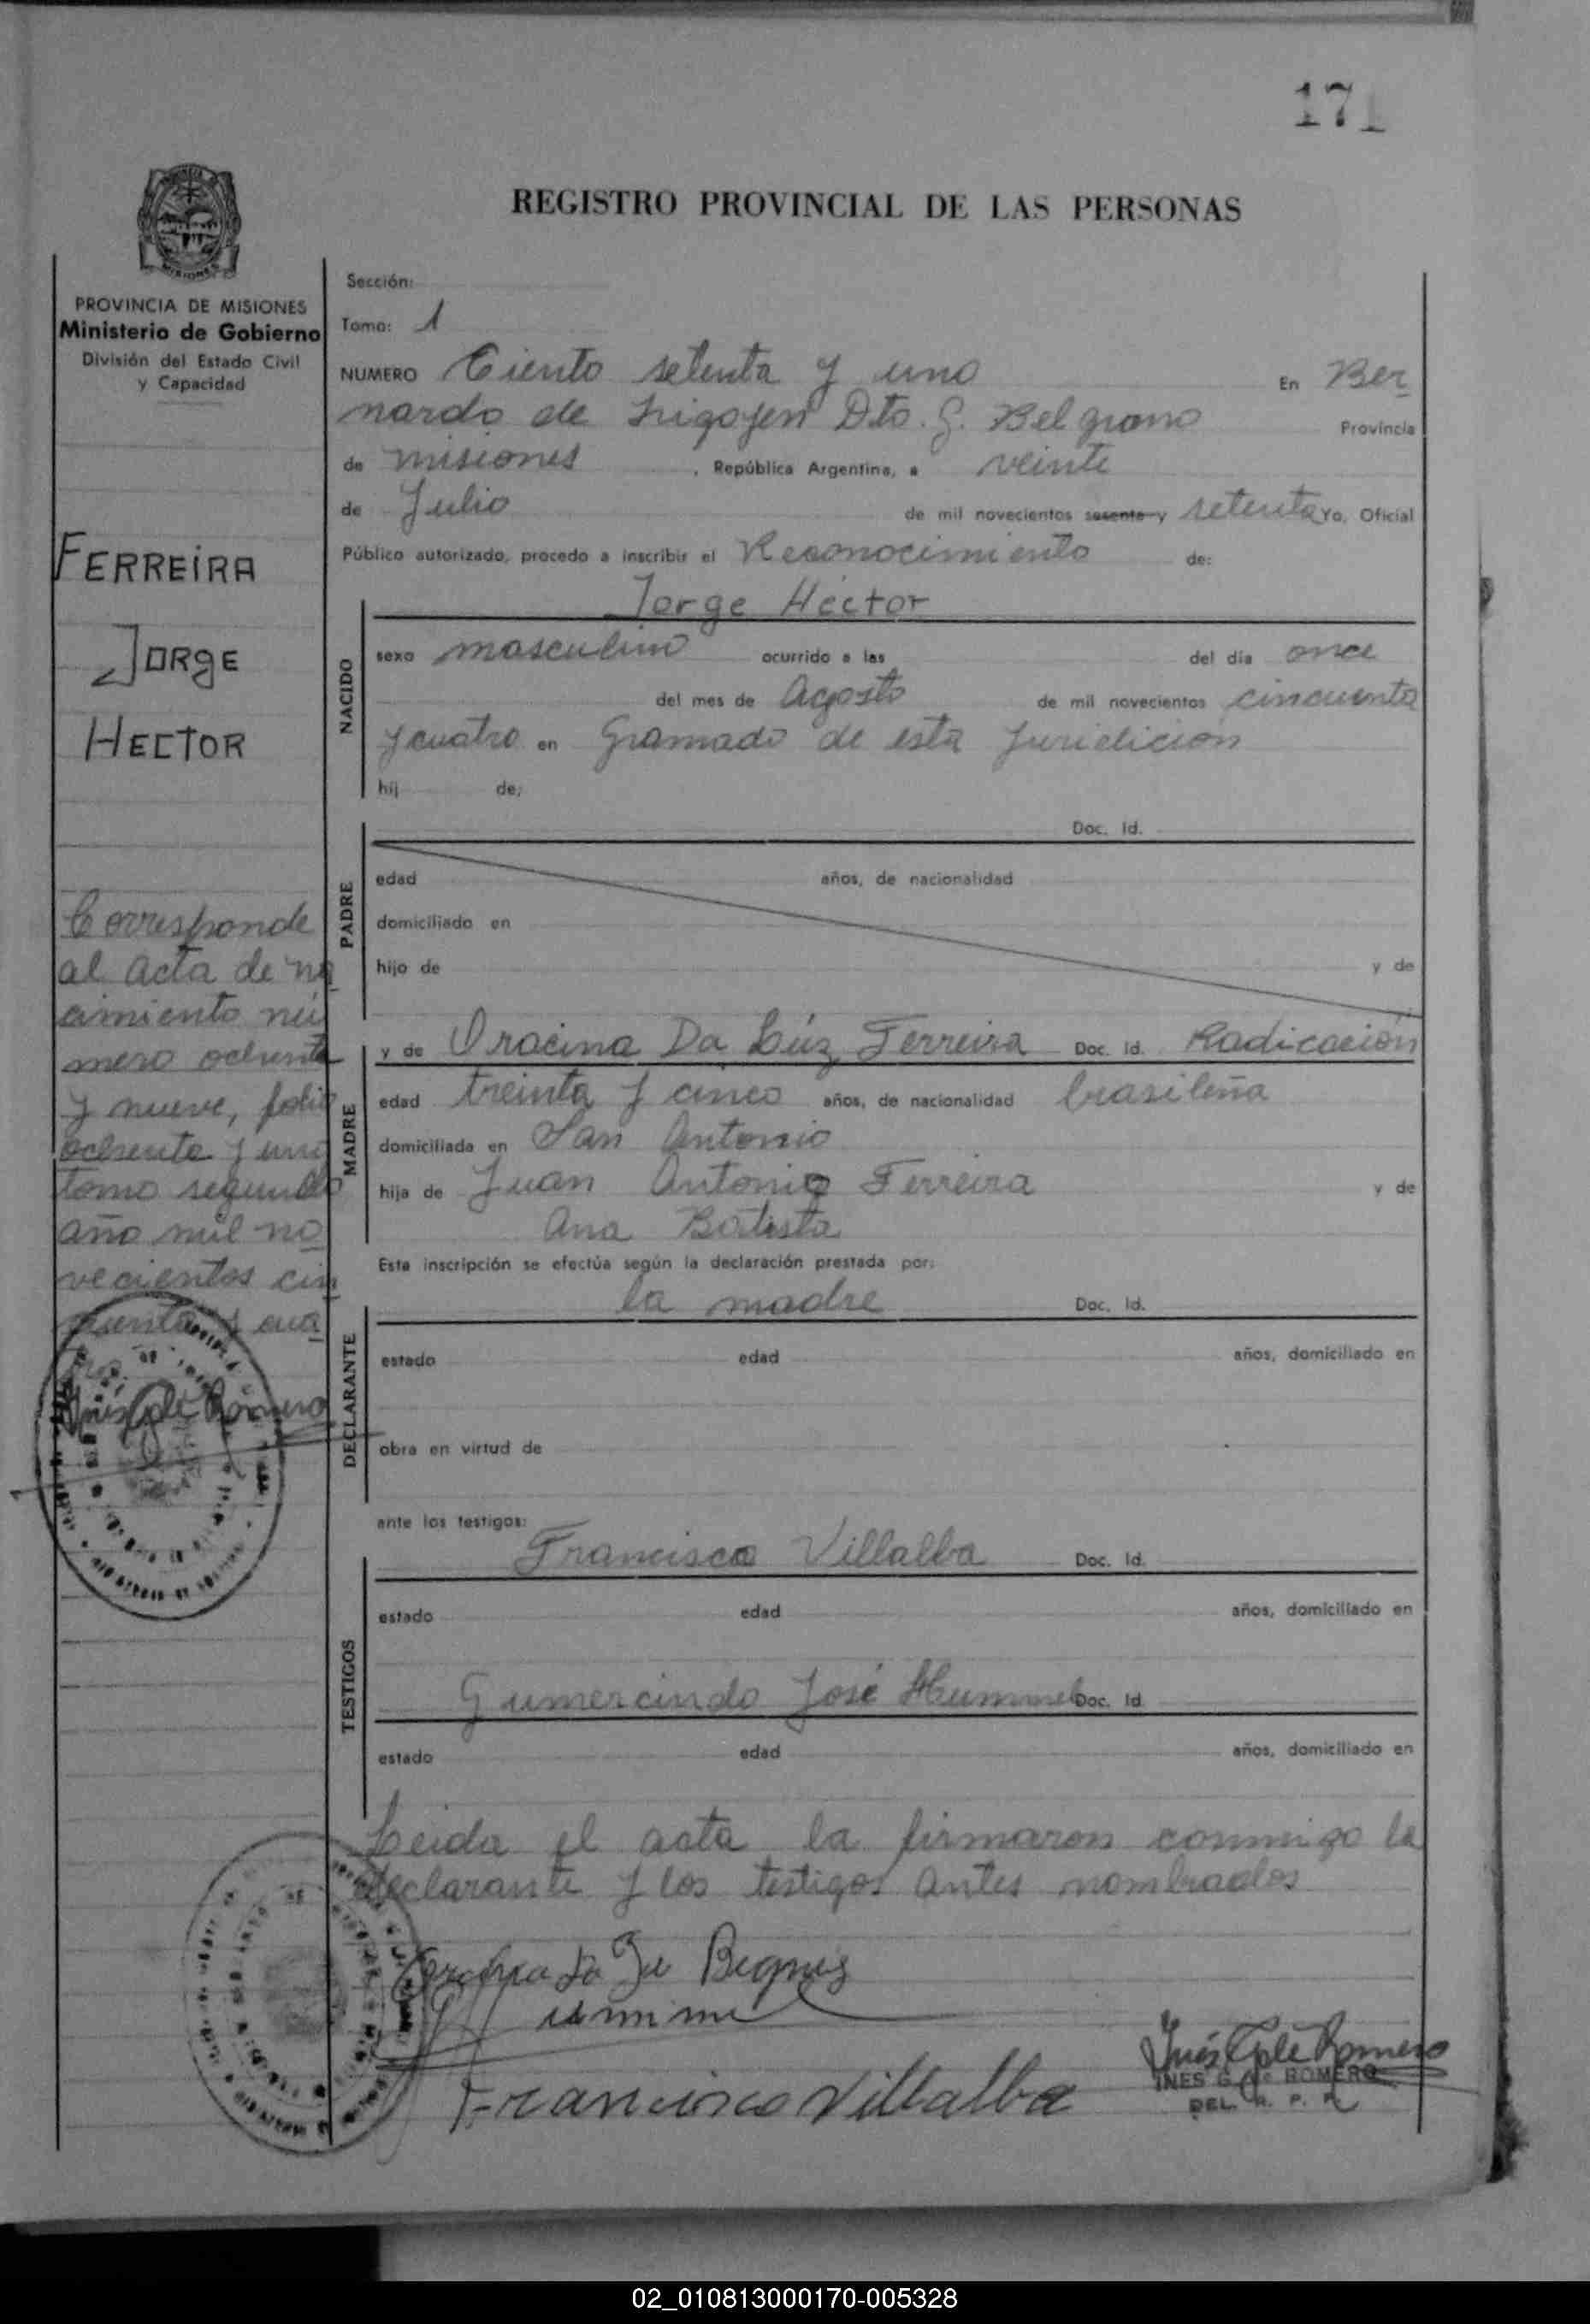 171
REGISTRO PROVINCIAL DE LAS PERSONAS
PROVINCIA DE MISIONES
Ministerio de Gobierno
División del Estado Civil
y Capacidad
FERREIRA
JORGE
HECTOR
Corresponde
al acta de na
cimiento nú
mero ochenta
y nueve, folio
ochenta y uno
tomo segundo
año mil no
vecientos cin
cuenta y cua
tro.
Inés G de Romero
Sección:
Tomo: 1
NUMERO Ciento setenta y uno En Ber
nardo de Irigoyen Dto. G. Belgrano Provincia
de misiones , República Argentina, a veinte
de Julio de mil novecientos sesenta y setenta Yo, Oficial
Público autorizado, procedo a inscribir el Reconocimiento de:
NACIDO
Jorge Héctor
sexo masculino ocurrido a las del día once
del mes de Agosto de mil novecientos cincuenta
y cuatro en Gramado de esta Juridicion
hij de;
PADRE
Doc. Id.
edad años, de nacionalidad
domiciliado en
hijo de y de
MADRE
y de Oracina Da Lúz Ferreira Doc. Id. Radicación
edad treinta y cinco años, de nacionalidad brasileña
domiciliada en San Antonio
hija de Juan Antonio Ferreira y de
Ana Batista
Esta inscripción se efectúa según la declaración prestada por:
DECLARANTE
la madre Doc. Id.
estado edad años, domiciliado en
obra en virtud de
ante los testigos:
TESTIGOS
Francisco Villalba Doc. Id.
estado edad años, domiciliado en
Gumercindo José Hummel Doc. Id
estado edad años, domiciliado en
Leida el acta la firmaron conmigo la
declarante y los testigos antes nombrados
Francisco Villalba
Inés G de Romero
INES G. de ROMERO
DEL. R. P. P.
02_010813000170-005328